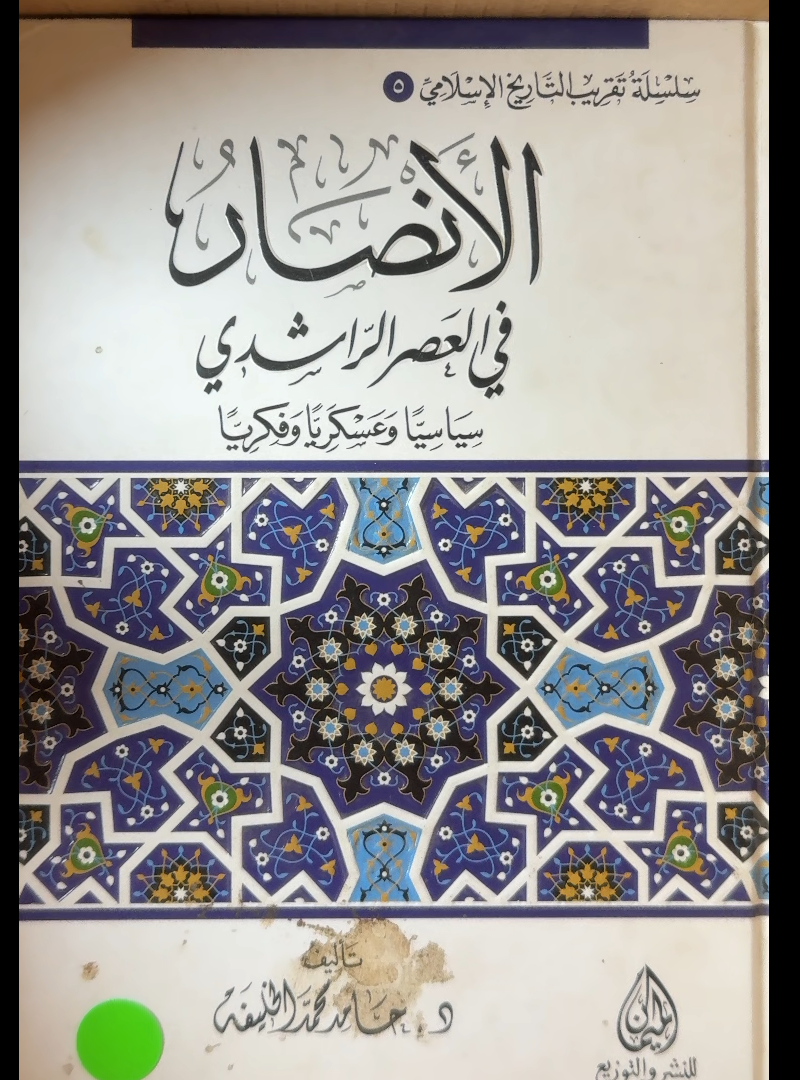 سِلْسِلَةُ تَقْرِيبِ التَّارِيخِ الإِسْلَامِيِّ ٥
الأَنْصَارُ
في العَصرِ الرَّاشدي
سِيَاسِيًّا وَعَسْكَرِيًّا وَفِكْرِيًّا
تَأليفُ
د. حَامد محمَّد الخليفَة
الميمان
للنشر والتوزيع